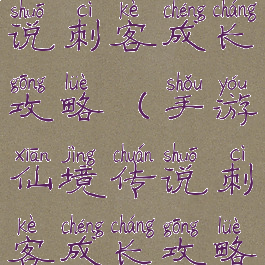 shuō cì kè chéng cháng
说刺客成长
gōng lüè shǒu yóu
攻略（手游
xiān jìng chuán shuō cì
仙境传说刺
kè chéng cháng gōng lüè
客成长攻略